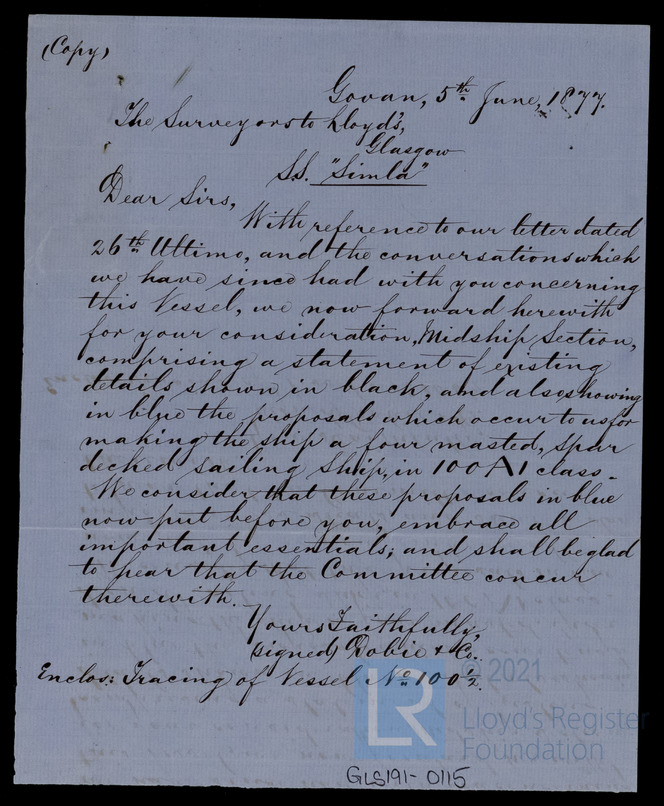 (Copy)
Govan, 5th June, 1877.
The Surveyors to Lloyd's,
Glasgow
S.S. "Simla"
Dear Sirs,
With reference to our letter dated
26th Ultimo, and the conversations which
we have since had with you concerning
this Vessel, we now forward herewith
for your consideration, Midship Section,
comprising a statement of existing
details shown in black, and also showing
in blue the proposals which occur to us for
making the ship a four masted, spar
decked sailing ship, in 100 A1 class.
We consider that these proposals in blue
now put before you, embrace all
important essentials; and shall be glad
to hear that the Committee concur
therewith.
Yours Faithfully,
(signed) Dobie & Co.
Enclos: Tracing of Vessel No. 100 1/2.
© 2021
LR
Lloyd's Register
Foundation
GLS191-0115